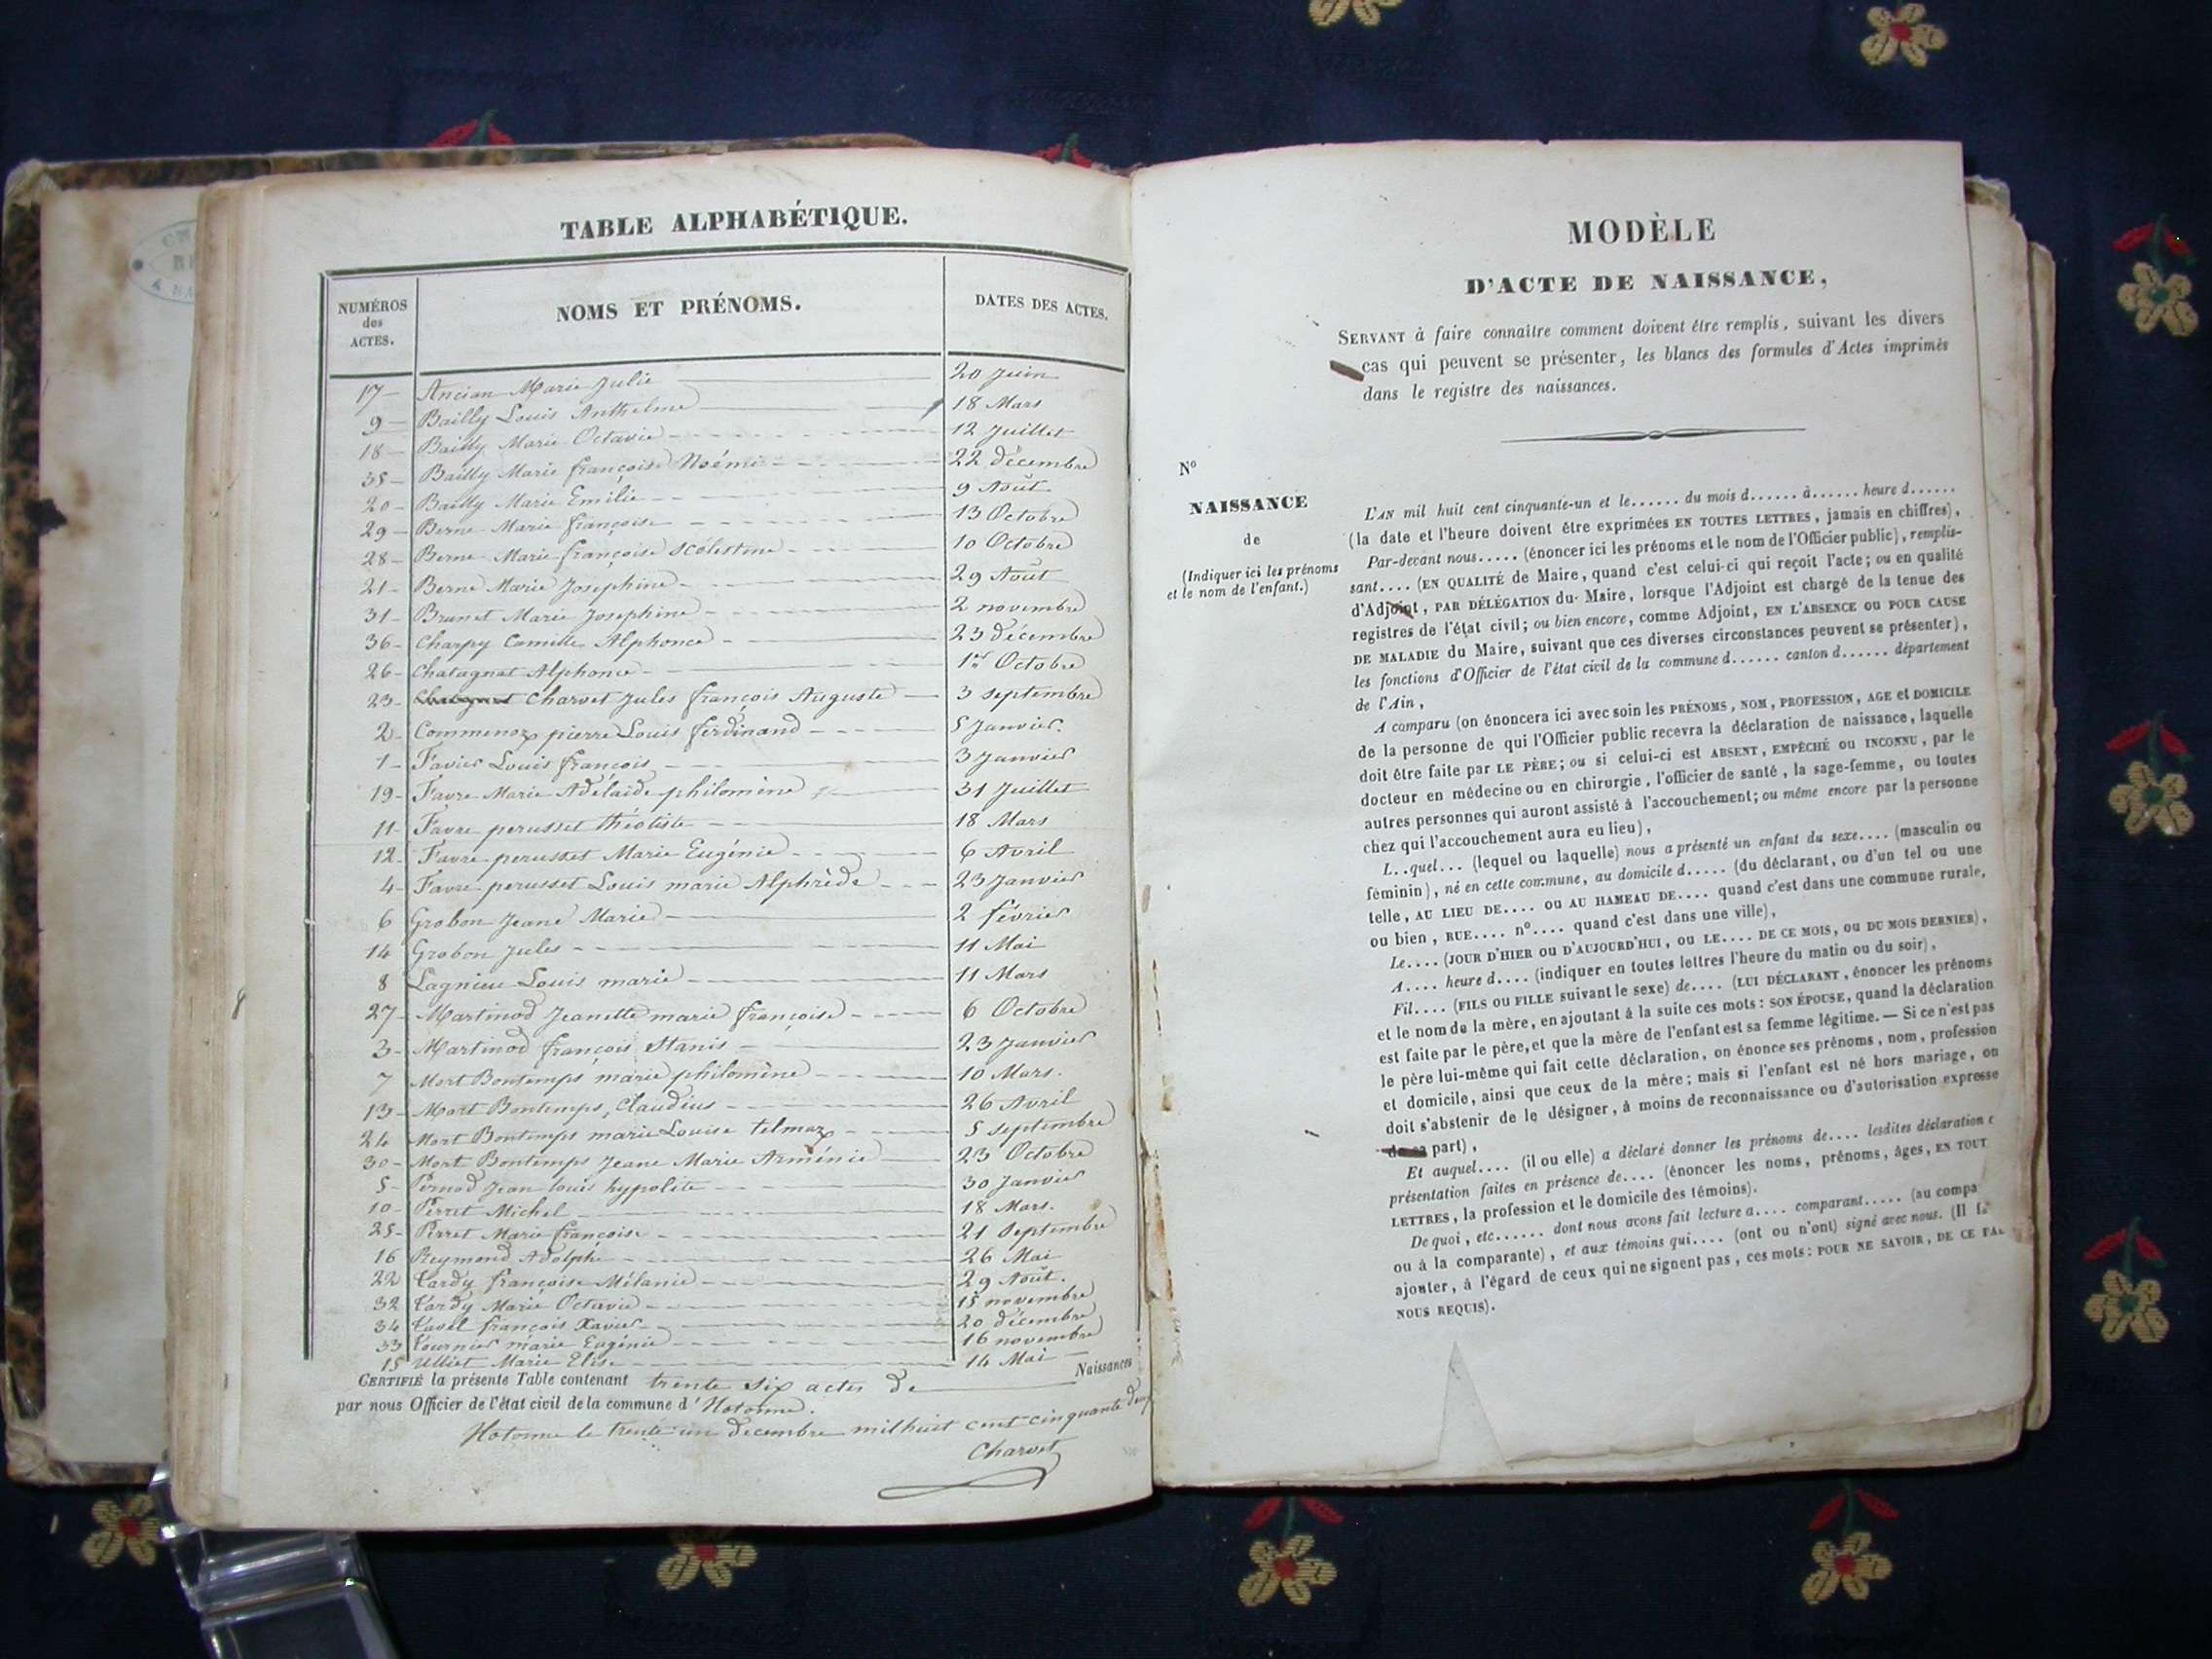 TABLE ALPHABÉTIQUE.
NUMÉROS des ACTES. NOMS ET PRÉNOMS. DATES DES ACTES.
17 — Ancian Marie Julie 20 Juin
9 — Bailly Louis Anthelme 18 Mars
18 — Bailly Marie Octavie 12 Juillet
35 — Bailly Marie françoise Noémi 22 décembre
20 — Bailly Marie Emilie 9 Août
29 — Berne Marie françoise 13 Octobre
28 — Berne Marie françoise Scolestine 10 Octobre
21 — Berne Marie Josephine 29 Août
31 — Brunet Marie Josephine 2 novembre
36 — Charpy Camille Alphonce 23 décembre
26 — Chatagnat Alphonce 1er Octobre
23 — Charvet Jules françois Auguste 3 septembre
2 — Commenoz pierre Louis ferdinand 5 Janvier.
1 — Favier Louis françois 3 Janvier
19 — Favre Marie Adélaïde philomène 31 Juillet
11 — Favre perusset théotiste 18 Mars
12 — Favre perusset Marie Eugénie 6 Avril
4 — Favre perusset Louis marie Alphrède 23 Janvier
6 Grobon Jeane Marie 2 février
14 Grobon Jules 11 Mai
8 Lagnieu Louis marie 11 Mars
27 — Martinod Jeanette marie françoise 6 Octobre
3 — Martinod françois Stanis 23 Janvier
7 Mort Bontemps marie philomène 10 Mars.
13 — Mort Bontemps, Claudius 26 Avril
24 Mort Bontemps marie Louise telmaz 5 septembre
30 — Mort Bontemps Jeane Marie Arménie 23 Octobre
5 — Pernod Jean louis hypolite 30 Janvier
10 — Perret Michel 18 Mars.
25 — Perret Marie françoise 21 Septembre
16 Reymond Adolphe 26 Mai
22 tardy françoise Mélanie 29 Août.
32 tardy Marie Octavie 15 novembre
34 tavel françois Xavier 20 décembre
33 tournier marie Eugénie 16 novembre
15 Ulliet Marie Elise 14 Mai
CERTIFIÉ la présente Table contenant trente six actes de Naissances
par nous Officier de l'état civil de la commune d'Hotonne.
Hotonne le trente-un décembre mil huit cent cinquante deux
Charvet
MODÈLE
D'ACTE DE NAISSANCE,
SERVANT à faire connaître comment doivent être remplis, suivant les divers
cas qui peuvent se présenter, les blancs des formules d'Actes imprimés
dans le registre des naissances.
N°
NAISSANCE
de
(Indiquer ici les prénoms
et le nom de l'enfant.)
L'AN mil huit cent cinquante-un et le...... du mois d...... à...... heure d......
(la date et l'heure doivent être exprimées EN TOUTES LETTRES, jamais en chiffres),
Par-devant nous..... (énoncer ici les prénoms et le nom de l'Officier public), remplis-
sant.... (EN QUALITÉ de Maire, quand c'est celui-ci qui reçoit l'acte; ou en qualité
d'Adjoint, PAR DÉLÉGATION du Maire, lorsque l'Adjoint est chargé de la tenue des
registres de l'état civil; ou bien encore, comme Adjoint, EN L'ABSENCE ou POUR CAUSE
DE MALADIE du Maire, suivant que ces diverses circonstances peuvent se présenter),
les fonctions d'Officier de l'état civil de la commune d...... canton d...... département
de l'Ain,
A comparu (on énoncera ici avec soin les PRÉNOMS, NOM, PROFESSION, AGE et DOMICILE
de la personne de qui l'Officier public recevra la déclaration de naissance, laquelle
doit être faite par LE PÈRE; ou si celui-ci est ABSENT, EMPÊCHÉ ou INCONNU, par le
docteur en médecine ou en chirurgie, l'officier de santé, la sage-femme, ou toutes
autres personnes qui auront assisté à l'accouchement; ou même encore par la personne
chez qui l'accouchement aura eu lieu),
L..quel... (lequel ou laquelle) nous a présenté un enfant du sexe.... (masculin ou
féminin), né en cette commune, au domicile d..... (du déclarant, ou d'un tel ou une
telle, AU LIEU DE.... ou AU HAMEAU DE.... quand c'est dans une commune rurale,
ou bien, RUE.... n°.... quand c'est dans une ville),
Le.... (JOUR D'HIER ou D'AUJOURD'HUI, ou LE.... DE CE MOIS, ou DU MOIS DERNIER),
A.... heure d.... (indiquer en toutes lettres l'heure du matin ou du soir),
Fil.... (FILS ou FILLE suivant le sexe) de.... (LUI DÉCLARANT, énoncer les prénoms
et le nom de la mère, en ajoutant à la suite ces mots: SON ÉPOUSE, quand la déclaration
est faite par le père, et que la mère de l'enfant est sa femme légitime. — Si ce n'est pas
le père lui-même qui fait cette déclaration, on énonce ses prénoms, nom, profession
et domicile, ainsi que ceux de la mère; mais si l'enfant est né hors mariage, on
doit s'abstenir de le désigner, à moins de reconnaissance ou d'autorisation expresse
de sa part),
Et auquel.... (il ou elle) a déclaré donner les prénoms de.... lesdites déclaration e
présentation faites en présence de.... (énoncer les noms, prénoms, âges, EN TOUT
LETTRES, la profession et le domicile des témoins).
De quoi, etc...... dont nous avons fait lecture a.... comparant..... (au compa
ou à la comparante), et aux témoins qui.... (ont ou n'ont) signé avec nous. (Il fa
ajouter, à l'égard de ceux qui ne signent pas, ces mots: POUR NE SAVOIR, DE CE FAI
NOUS REQUIS).